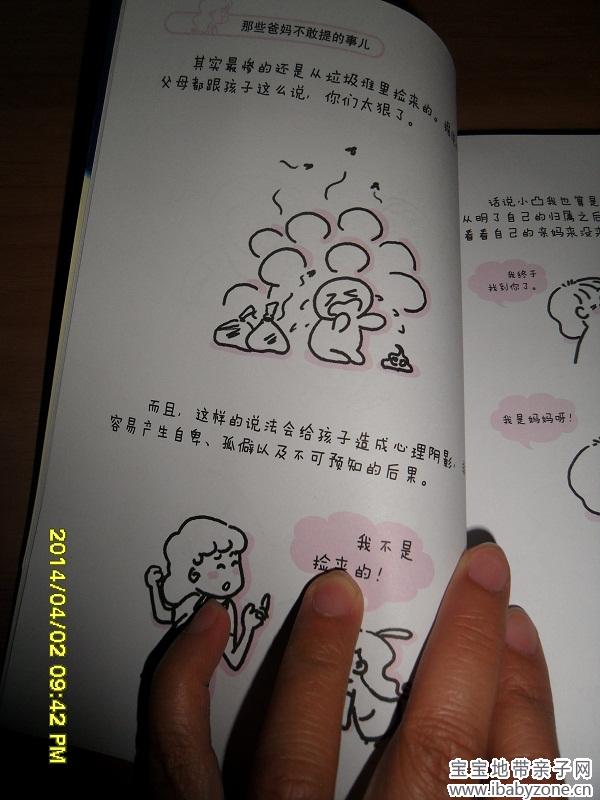 那些爸妈不敢提的事儿
其实最惨的还是从垃圾堆里捡来的。
父母都跟孩子这么说，你们太狠了。
而且，这样的说法会给孩子造成心理阴影，
容易产生自卑、孤僻以及不可预知的后果。
我不是
捡来的！
话说小凸我也算是
从明了自己的归属之后
看看自己的亲妈来没来
我终于
找到你了。
我是妈妈呀！
2014/04/02 09:42 PM
宝宝地带亲子网
www.ibabyzone.cn